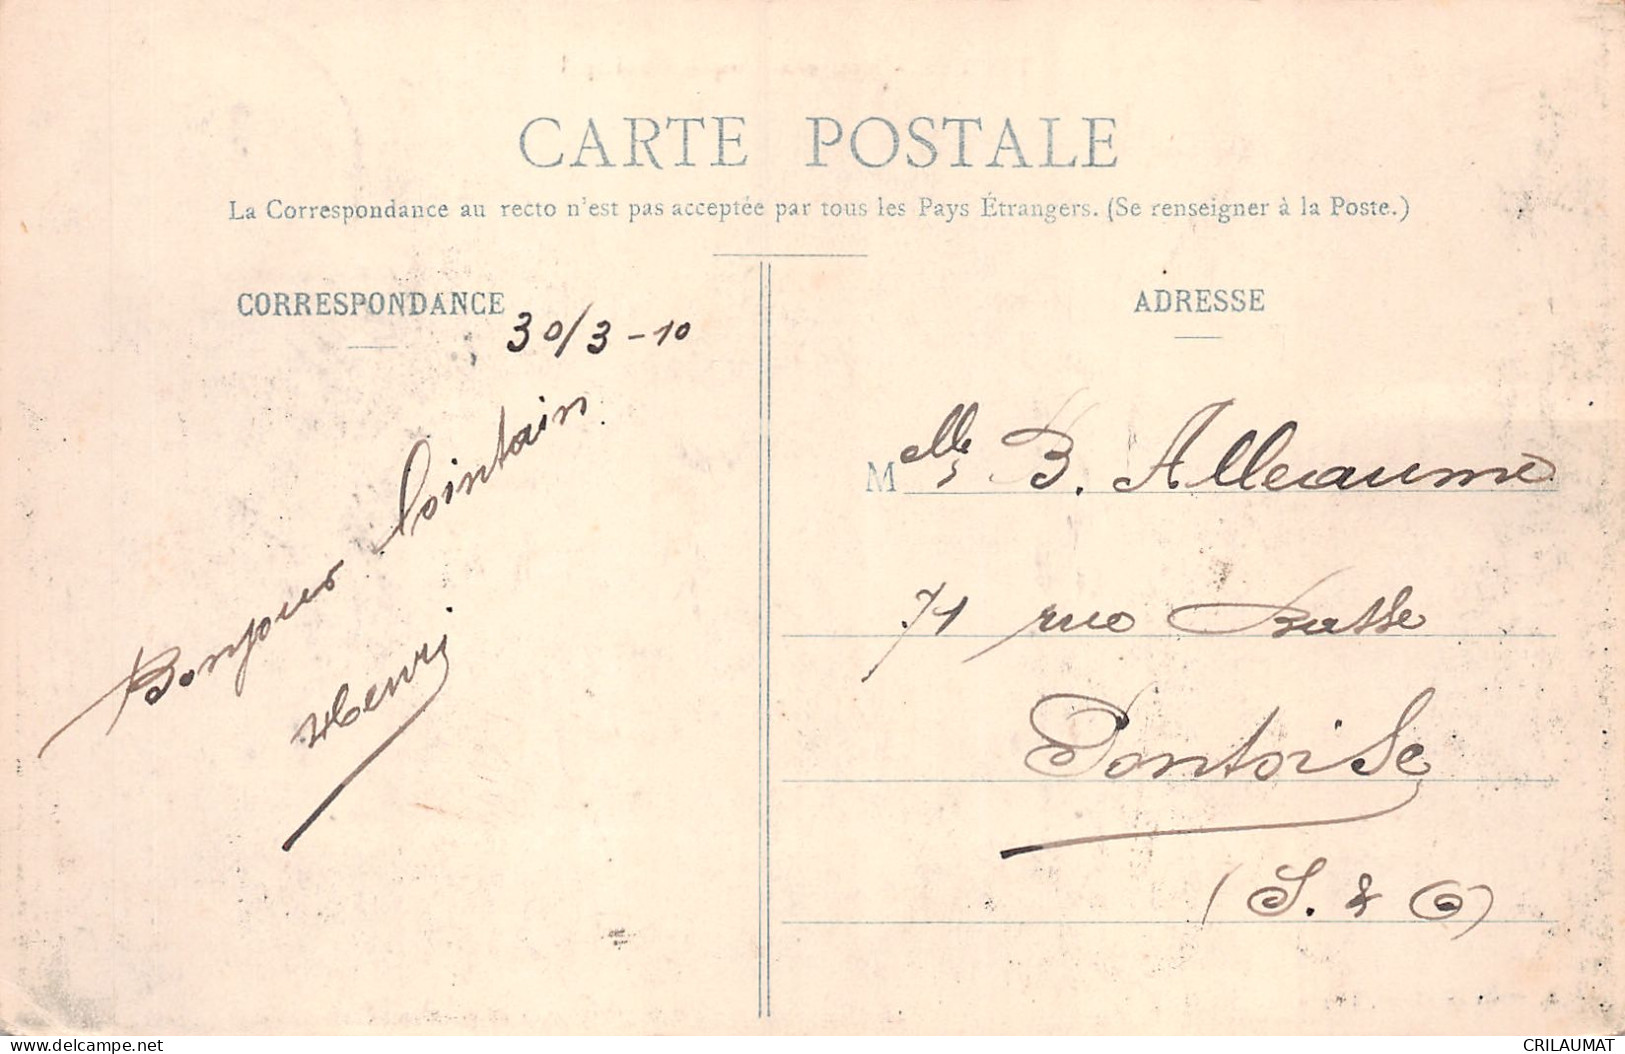 CARTE POSTALE
La Correspondance au recto n'est pas acceptée par tous les Pays Étrangers. (Se renseigner à la Poste.)
CORRESPONDANCE
30/3-10
Bonjour lointain
Henri
ADRESSE
Melle B. Alleaume
71 rue Basse
Pontoise
(S. & O)
delcampe.net
CRILAUMAT